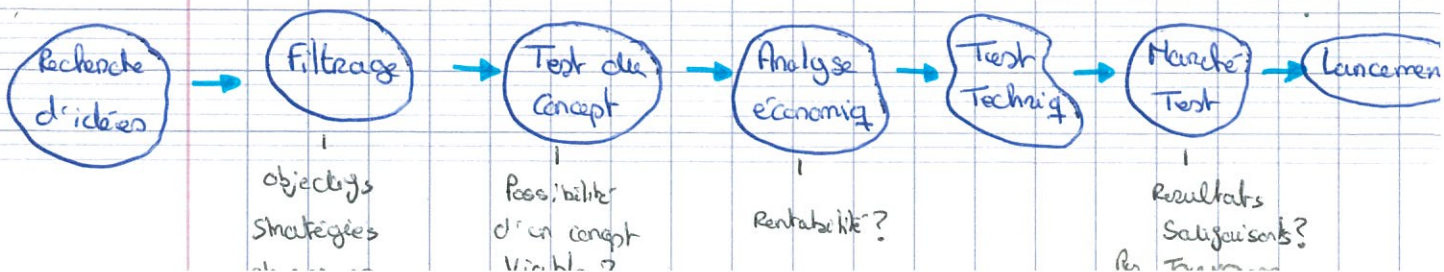 Recherche
d'idées
Filtrage
Test du
Concept
Analyse
économiq
Test
Techniq
Marché
Test
Lancemen
objectifs
Stratégies
Possibilité
d'un concept
Viable ?
Rentabilité ?
Resultats
Satisfaisants ?